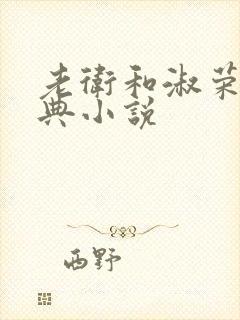 老衛和淑荣
典小說
西野